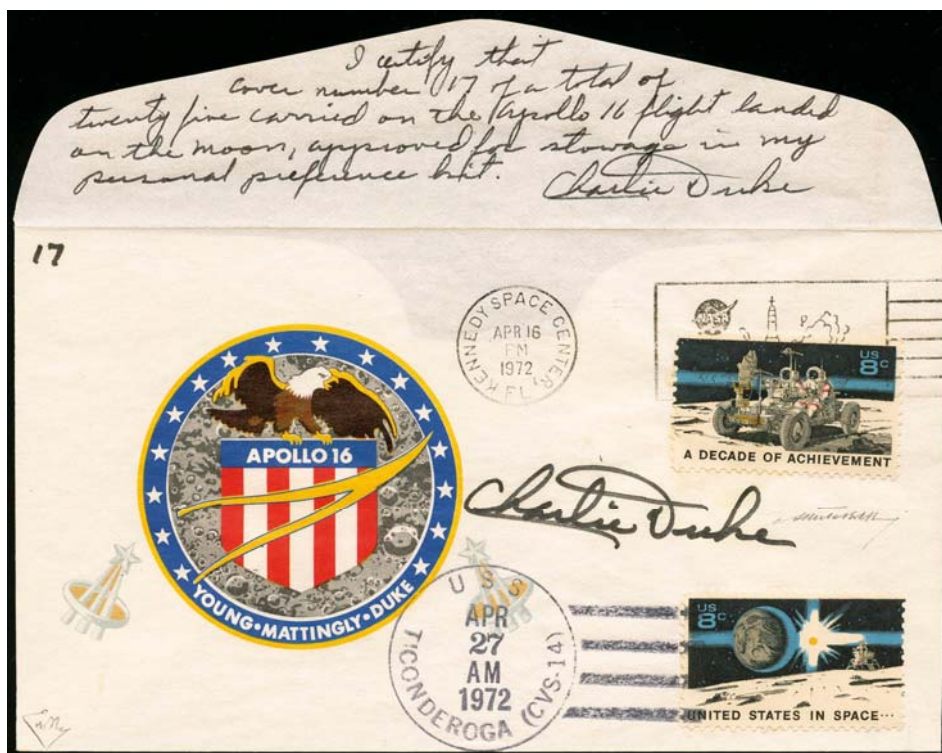 I certify that
cover number 17 of a total of
twenty five carried on the Apollo 16 flight landed
on the moon, approved for stowage in my
personal preference kit. Charlie Duke
17
KENNEDY SPACE CENTER, FL
APR 16
PM
1972
NASA
US
8c
A DECADE OF ACHIEVEMENT
APOLLO 16
YOUNG • MATTINGLY • DUKE
Charlie Duke
USS
TICONDEROGA (CVS-14)
APR
27
AM
1972
US
8c
UNITED STATES IN SPACE...